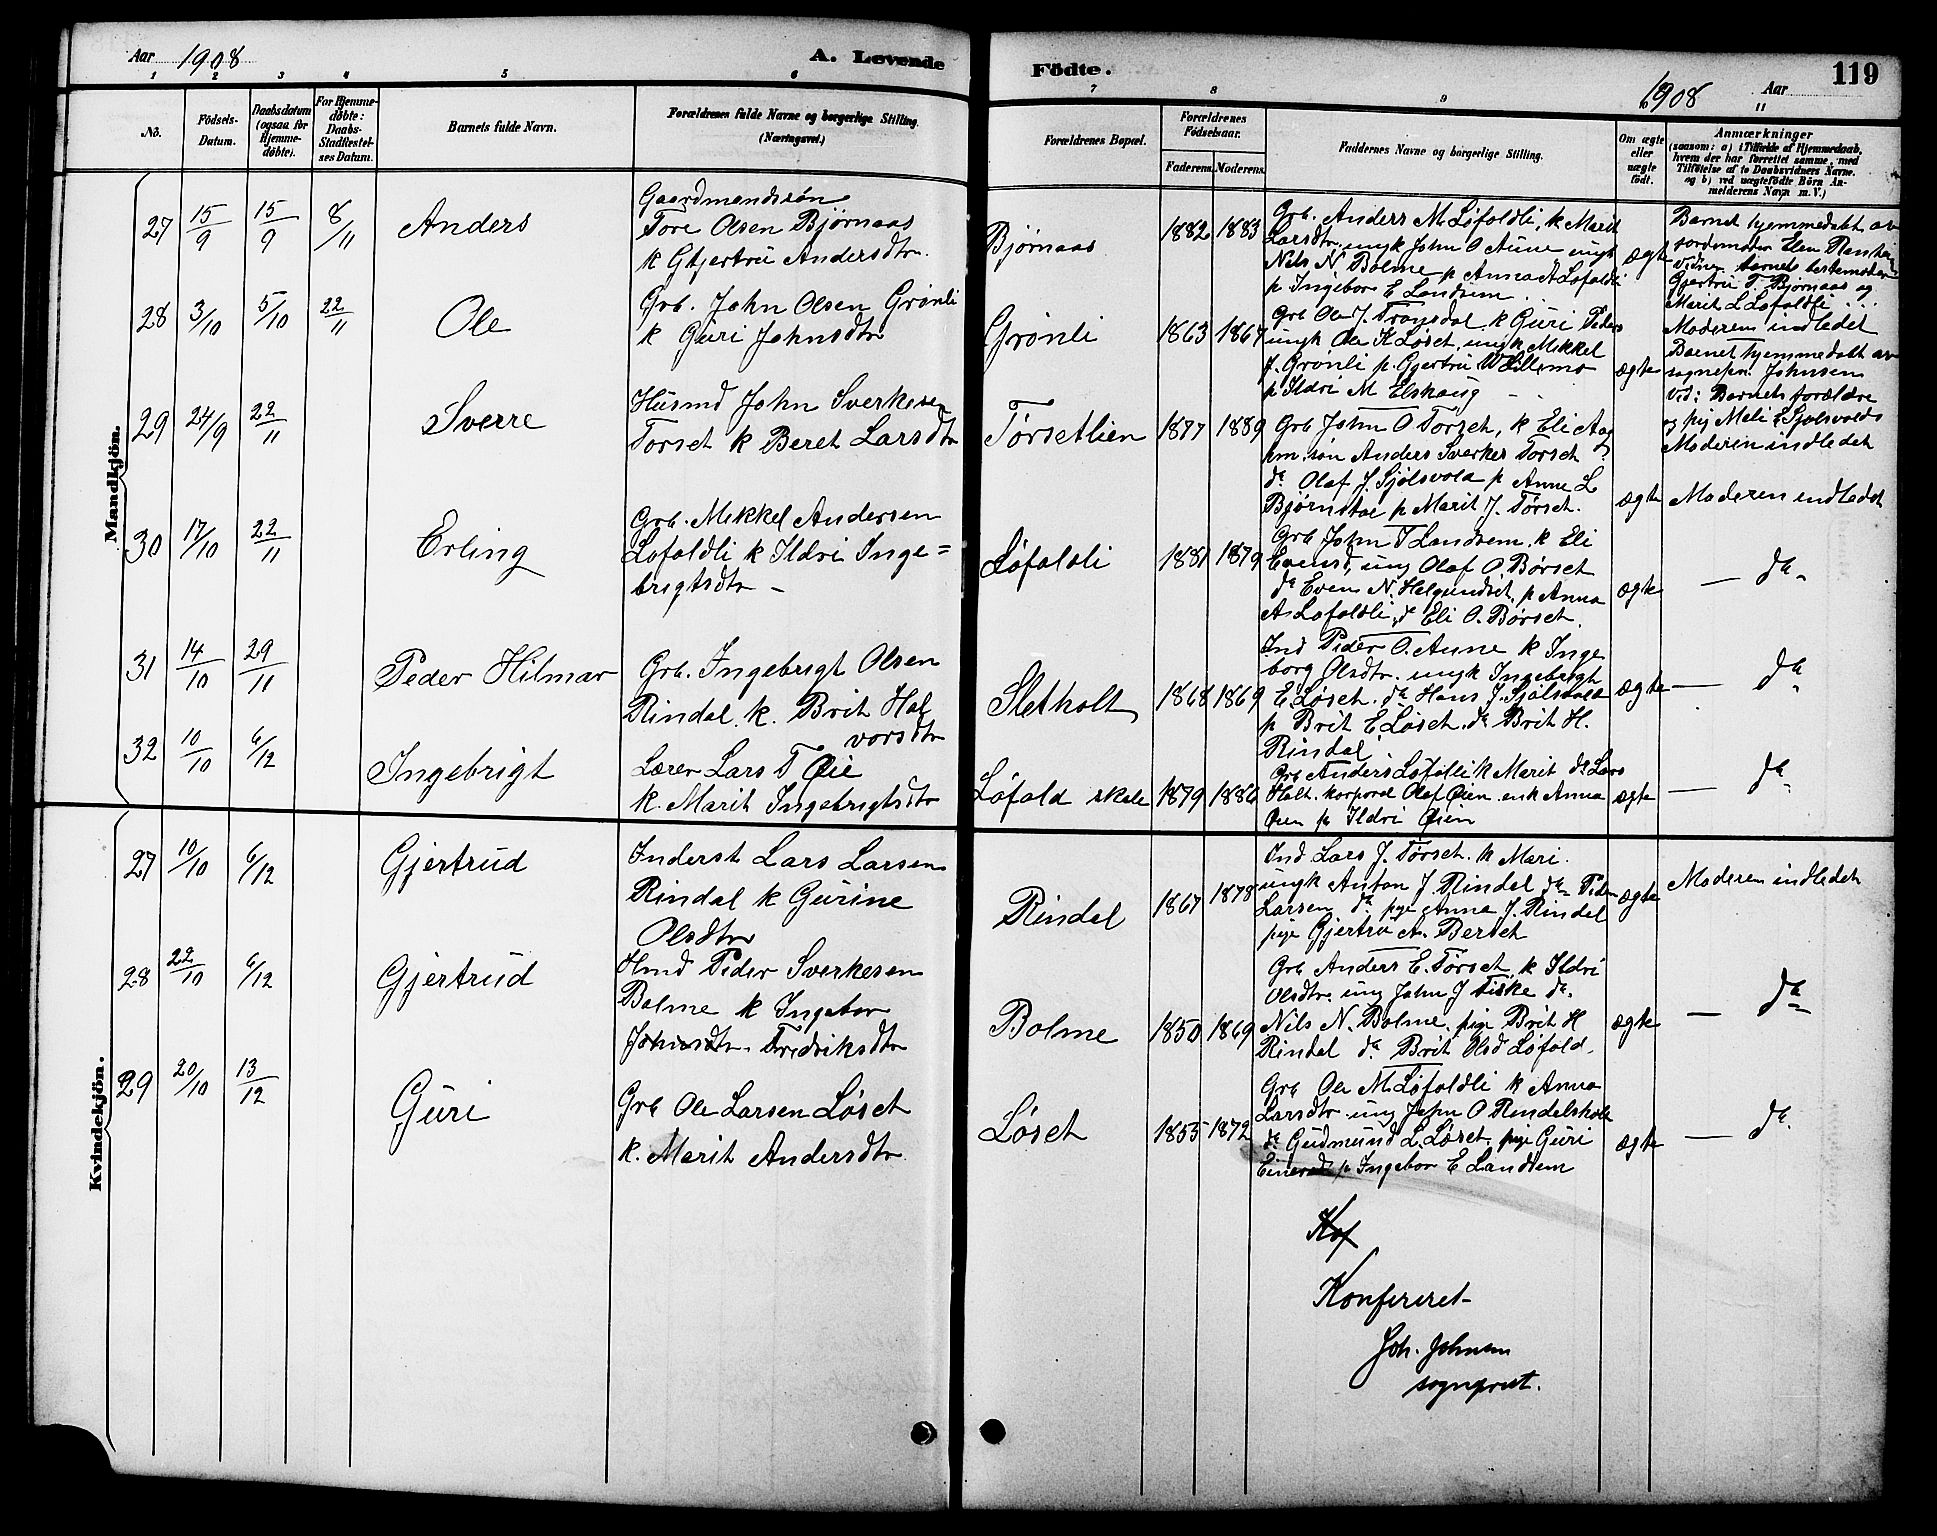 Aar 1908
A. Levende
Födte.
1908 Aar
119
1 2 3 4 5 6 7 8 9 11
No.
Födsels-
Datum.
Daabsdatum
(ogsaa for
Hjemme-
döbte).
For Hjemme-
döbte:
Daabs-
Stadfæstel-
ses Datum.
Barnets fulde Navn.
Forældrenes fulde Navne og borgerlige Stilling.
(Næringsvei.)
Forældrenes Bopæl.
Forældrenes
Födselsaar.
Faderens. Moderens.
Faddernes Navne og borgerlige Stilling.
Om ægte
eller
uægte
födt.
Anmærkninger
(saasom: a) i Tilfælde af Hjemmedaab,
hvem der har forrettet samme, med
Tilföielse af to Daabsvidners Navne.
og b) ved uægtefödte Börn An-
melderens Navn m. V.)
Mandkjön.
27 15/9 15/9 8/11 Anders
Gaardmandssön
Tore Olsen Bjørnaas
k Gjertru Andersdtr.
Bjørnaas 1882 1883
Grb. Anders M Løfoldli, k Marit
Larsdtr, ungk John O Aune ungk
Nils N Bolme p Anna A Løfoldli
p Ingebor E Landsem
ægte
Barnet hjemmedøbt av
jordemoder Elen
Vidner barnets bestemoder
Gjertru T. Bjørnaas og
Marit L Løfoldli
Moderen indledet
28 3/10 5/10 22/11 Ole
Grb. John Olsen Grönli
k Guri Johnsdtr
Grönli 1863 1867
Grb Ole J. Trøgsdal k Guri Peders
ungk Ole K Løset, ungk Mikkel
J. Grönli p. Gjertru W Lillemo
p Ildri M Elshaug
ægte
Barnet hjemmedøbt av
sognepr. Johnsen
Vid: Barnets forældre
og pig Meli E Sjølsvolds
Moderen indledet
29 24/9 22/11 Sverre
Husmd John Sverkesen
Torset k Beret Larsdtr
Tørsetlien 1877 1889
Grb John O Torset, k Eli Aag
hm. søn Anders Sverkes Torset
da Olaf J. Sjølsvold p Anne L
Bjørnstal p Marit J. Tørset.
ægte Moderen indledet
30 17/10 22/11 Erling
Grb. Mikkel Andersen
Løfoldli k Ildri Inge=
brigtsdtr -
Løfoldli 1881 1879
Grb John T Landsem, k Eli
Evensd, ung Olaf O Børset
da Even N. Helgundset, p Anna
A Løfoldli, da Eli O. Børset.
ægte — da
31 14/10 29/11 Peder Hilmar
Grb. Ingebrigt Olsen
Rindal. k. Brit Hal
vorsdtr
Sletholt 1868 1869
Ind Peder O. Aune k Inge
borg Olsdtr. ungk Ingebrigt
E Løset. da Hans J. Sjølsvold
p Brit E Løset. da Brit H.
Rindal
ægte — da
32 10/10 6/12 Ingebrigt
Lærer Lars T Øie
k. Marit Ingebrigtsdtr
Løfold skole 1879 1886
Grb Anders Løfoldli k Marit da Lars
Halt. korporal Olaf Øien. enk Anna
Øien p Ildri Øien
ægte — da
Kvindekjön.
27 10/10 6/12 Gjertrud
Inderst Lars Larsen
Rindal k Gurine
Olsdtr
Rindal 1867 1878
Ind Lars J. Tørset. k Mari.
ungk Anton J. Rindal da Peder
Larsen da pige Anna J. Rindal
pige Gjertru A. Berset
ægte Moderen indledet
28 22/10 6/12 Gjertrud
Hmd Peder Sverkesen
Bolme k Ingebor
Johnsdtr. Fredriksdtr
Bolme 1850 1869
Grb Anders E. Tørset k Ildri
Olsdtr. ung John J Fiske da.
Nils N. Bolme. pige Brit H
Rindal da Brit Olsd Løfold.
ægte — da
29 20/10 13/12 Guri
Grb Ole Larsen Løset
k. Marit Andersdtr.
Løset 1855 1872
Grb Ole M. Løfoldli k Anna
Larsdtr. ung John O Rindalshole
da Gudmund L. Løset. pige Guri
p Ingebor E Landsem
ægte — da.
Kof
Konfereret
Joh. Johnsen
sogneprest.